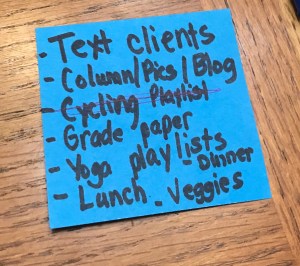 - Text clients
- Column/Pics/Blog
- Cycling Playlist
- Grade paper
- Yoga playlists
- Lunch - Dinner Veggies